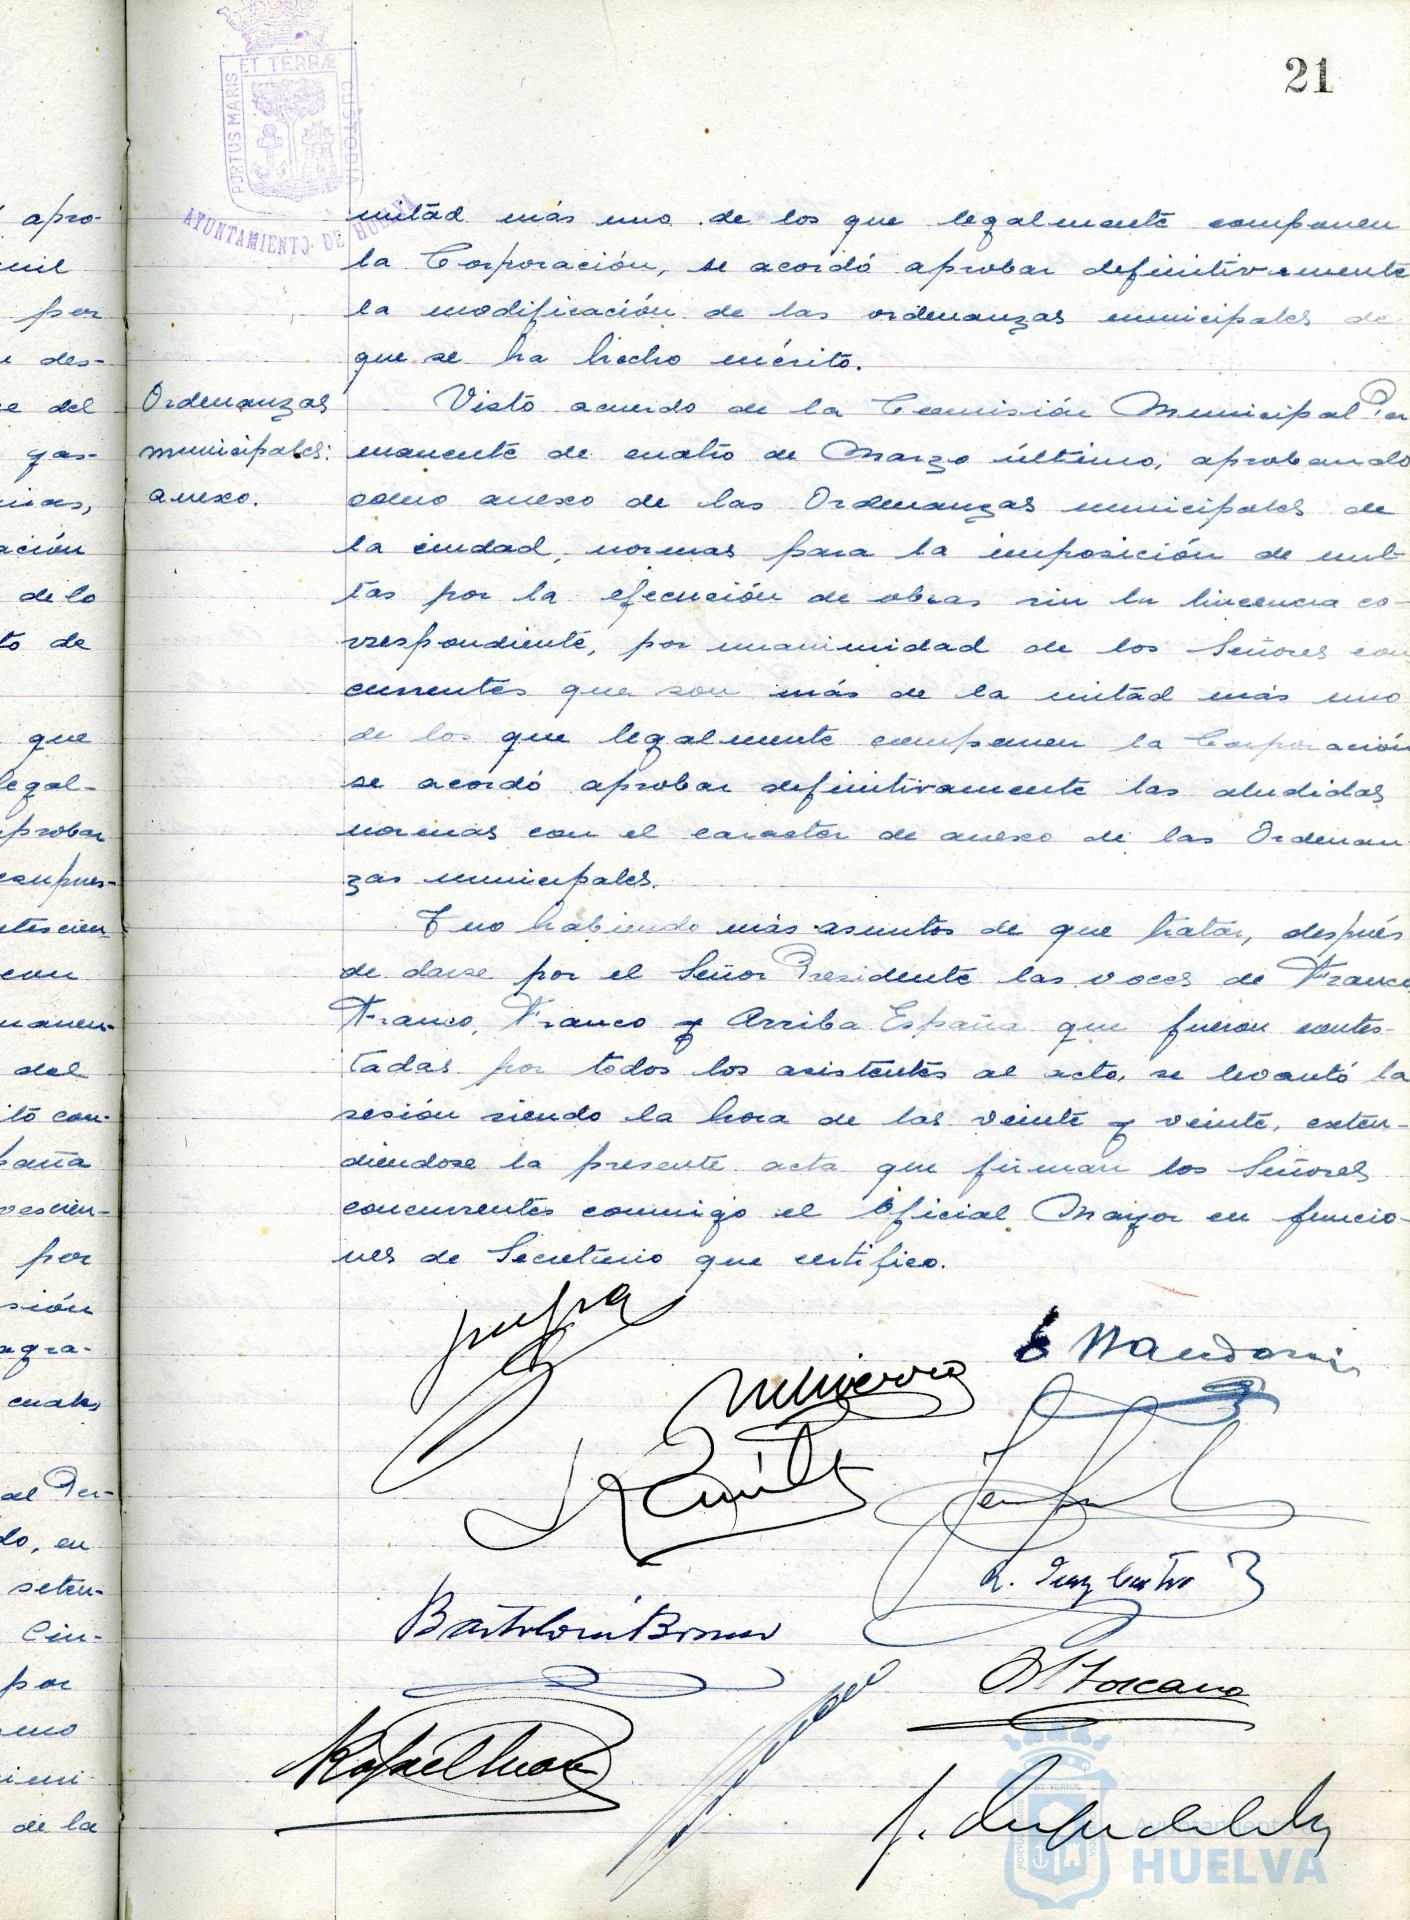 21
PORTUS MARIS ET TERRÆ CUSTODIA
AYUNTAMIENTO DE HUELVA
apro-
mil
por
des-
del
gas-
ación
de lo
to de
que
legal-
probar
compues-
con
manen-
del
itó con-
paña
por
sión
agra-
cuales
al Per-
do, en
seten-
Cin-
por
uno
de la
mitad más uno de los que legalmente componen
la Corporación, se acordó aprobar definitivamente
la modificación de las ordenanzas municipales de
que se ha hecho mérito.
Ordenanzas
municipales:
anexo.
Visto acuerdo de la Comisión Municipal Per
manente de cuatro de Marzo último, aprobando
como anexo de las Ordenanzas municipales de
la ciudad, normas para la imposición de mul-
tas por la ejecución de obras sin la lincencia co-
rrespondiente, por unanimidad de los Señores con
currentes que son más de la mitad más uno
de los que legalmente componen la Corporación
se acordó aprobar definitivamente las aludidas
normas con el caracter de anexo de las Ordenan-
zas municipales.
Y no habiendo más asuntos de que tratar, después
de darse por el Señor Presidente las voces de Franco,
Franco, Franco y Arriba España que fueron contes-
tadas por todos los asistentes al acto, se levantó la
sesión siendo la hora de las veinte y veinte, exten-
diendose la presente acta que firman los Señores
concurrentes conmigo el Oficial Mayor en funcio-
nes de Secretario que certifico.
Bartolomé
Toscano
Rafael
Ayuntamiento
HUELVA